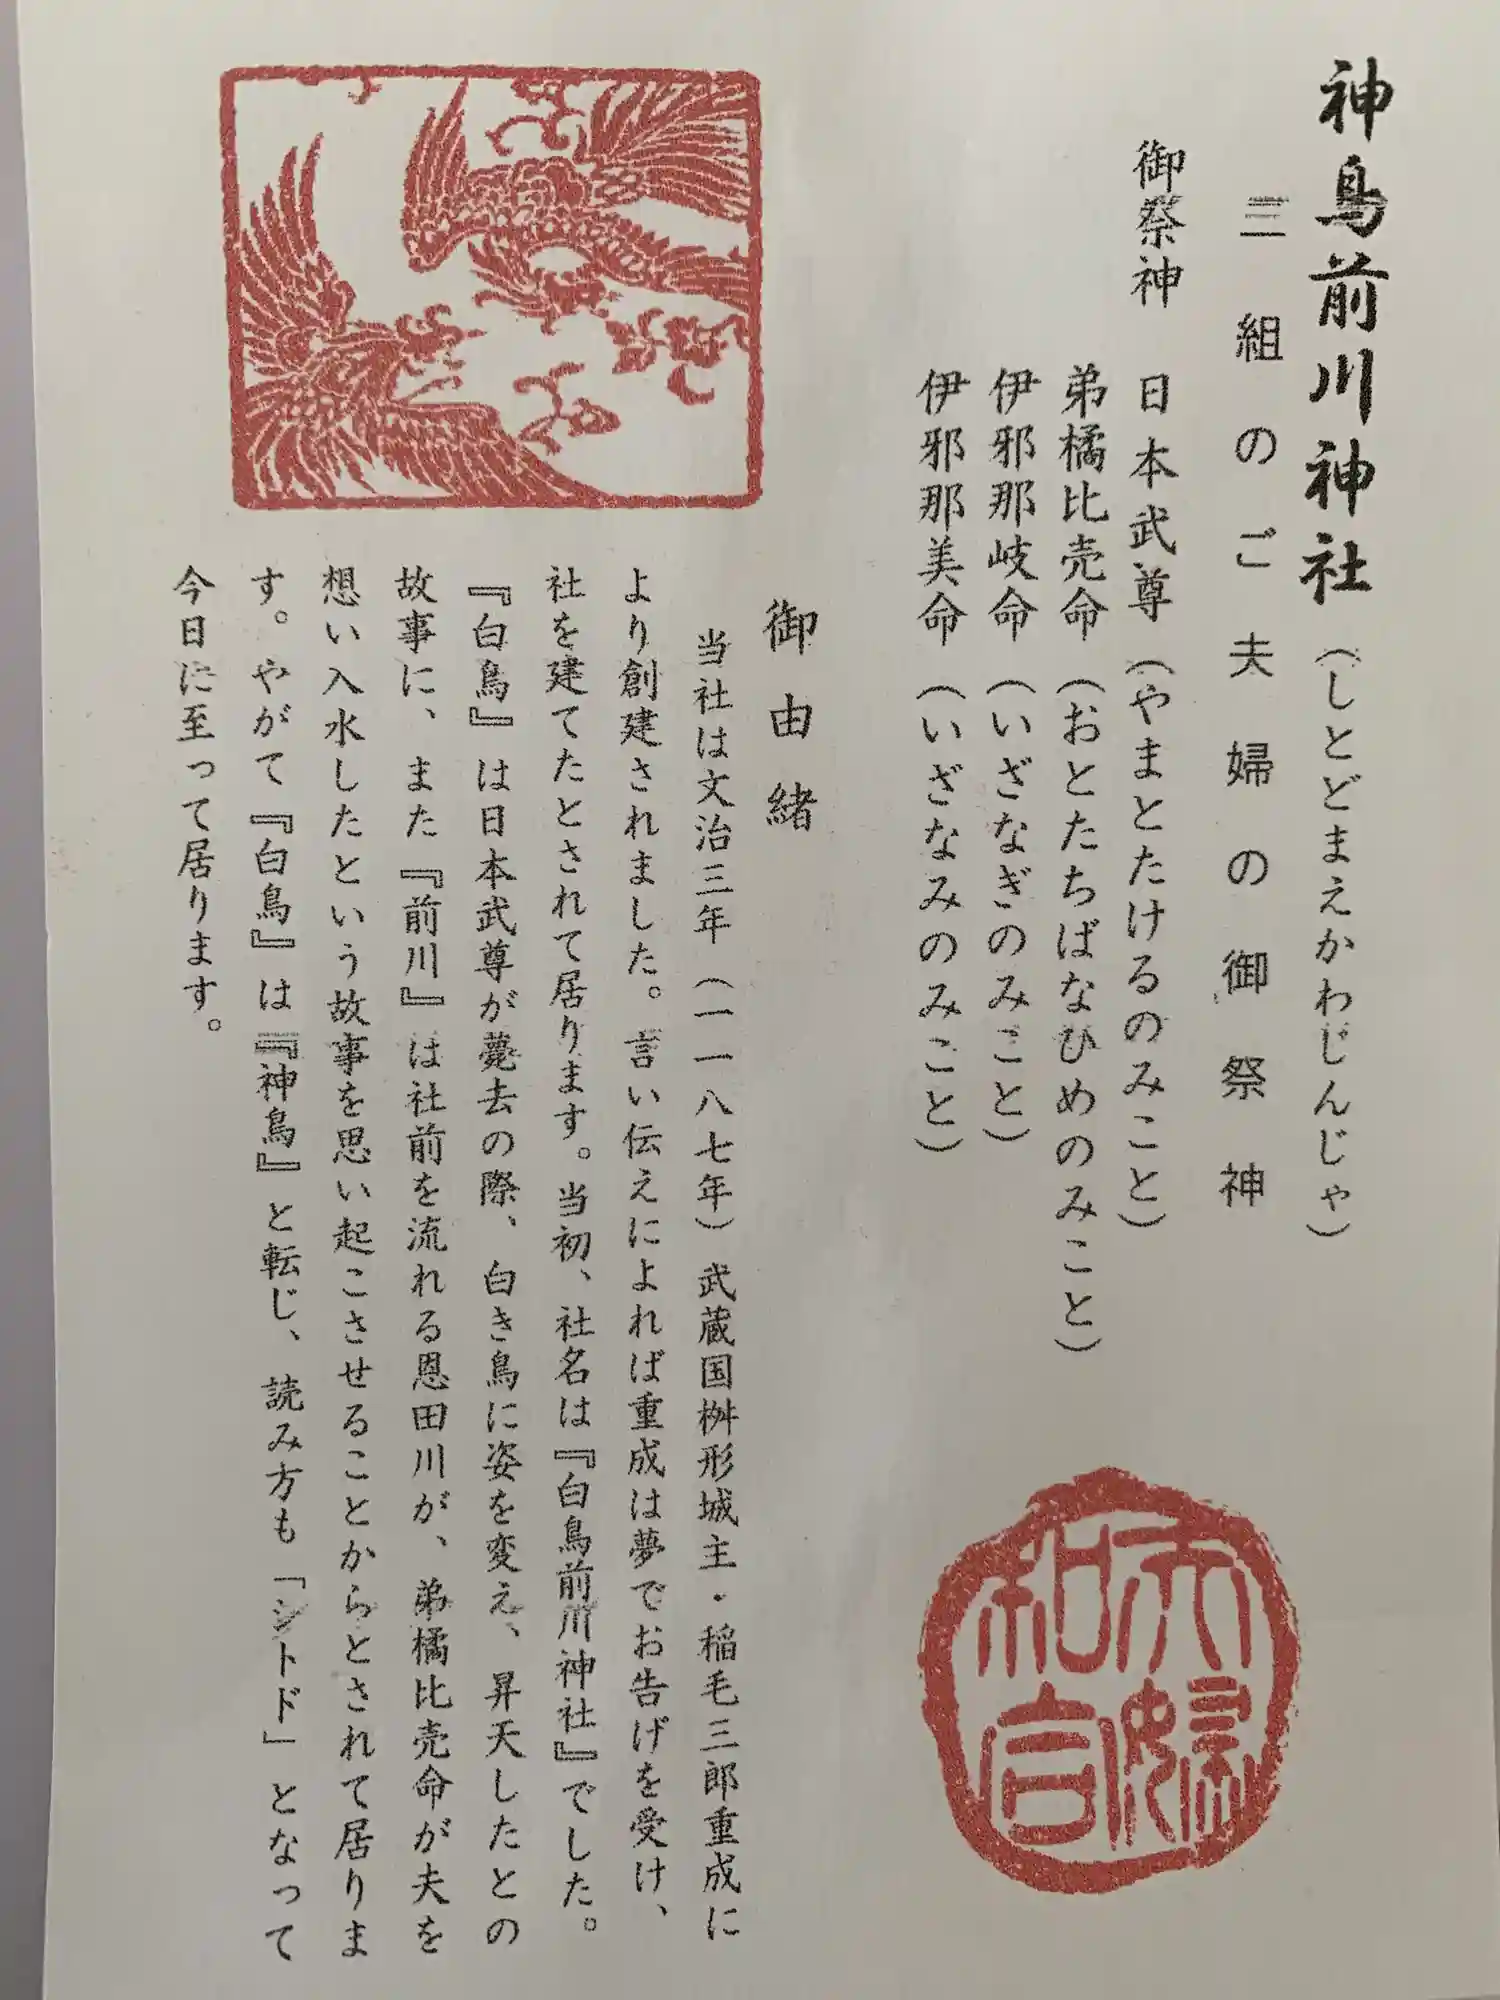 神鳥前川神社（しとどまえかわじんじゃ）
三組のご夫婦の御祭神
御祭神　日本武尊（やまとたけるのみこと）
弟橘比売命（おとたちばなひめのみこと）
伊邪那岐命（いざなぎのみこと）
伊邪那美命（いざなみのみこと）
御由緒
当社は文治三年（一一八七年）武蔵国桝形城主・稲毛三郎重成に
より創建されました。言い伝えによれば重成は夢でお告げを受け、
社を建てたとされて居ります。当初、社名は『白鳥前川神社』でした。
『白鳥』は日本武尊が薨去の際、白き鳥に姿を変え、昇天したとの
故事に、また『前川』は社前を流れる恩田川が、弟橘比売命が夫を
想い入水したという故事を思い起こさせることからとされて居りま
す。やがて『白鳥』は『神鳥』と転じ、読み方も「シトド」となって
今日に至って居ります。
夫婦
和合